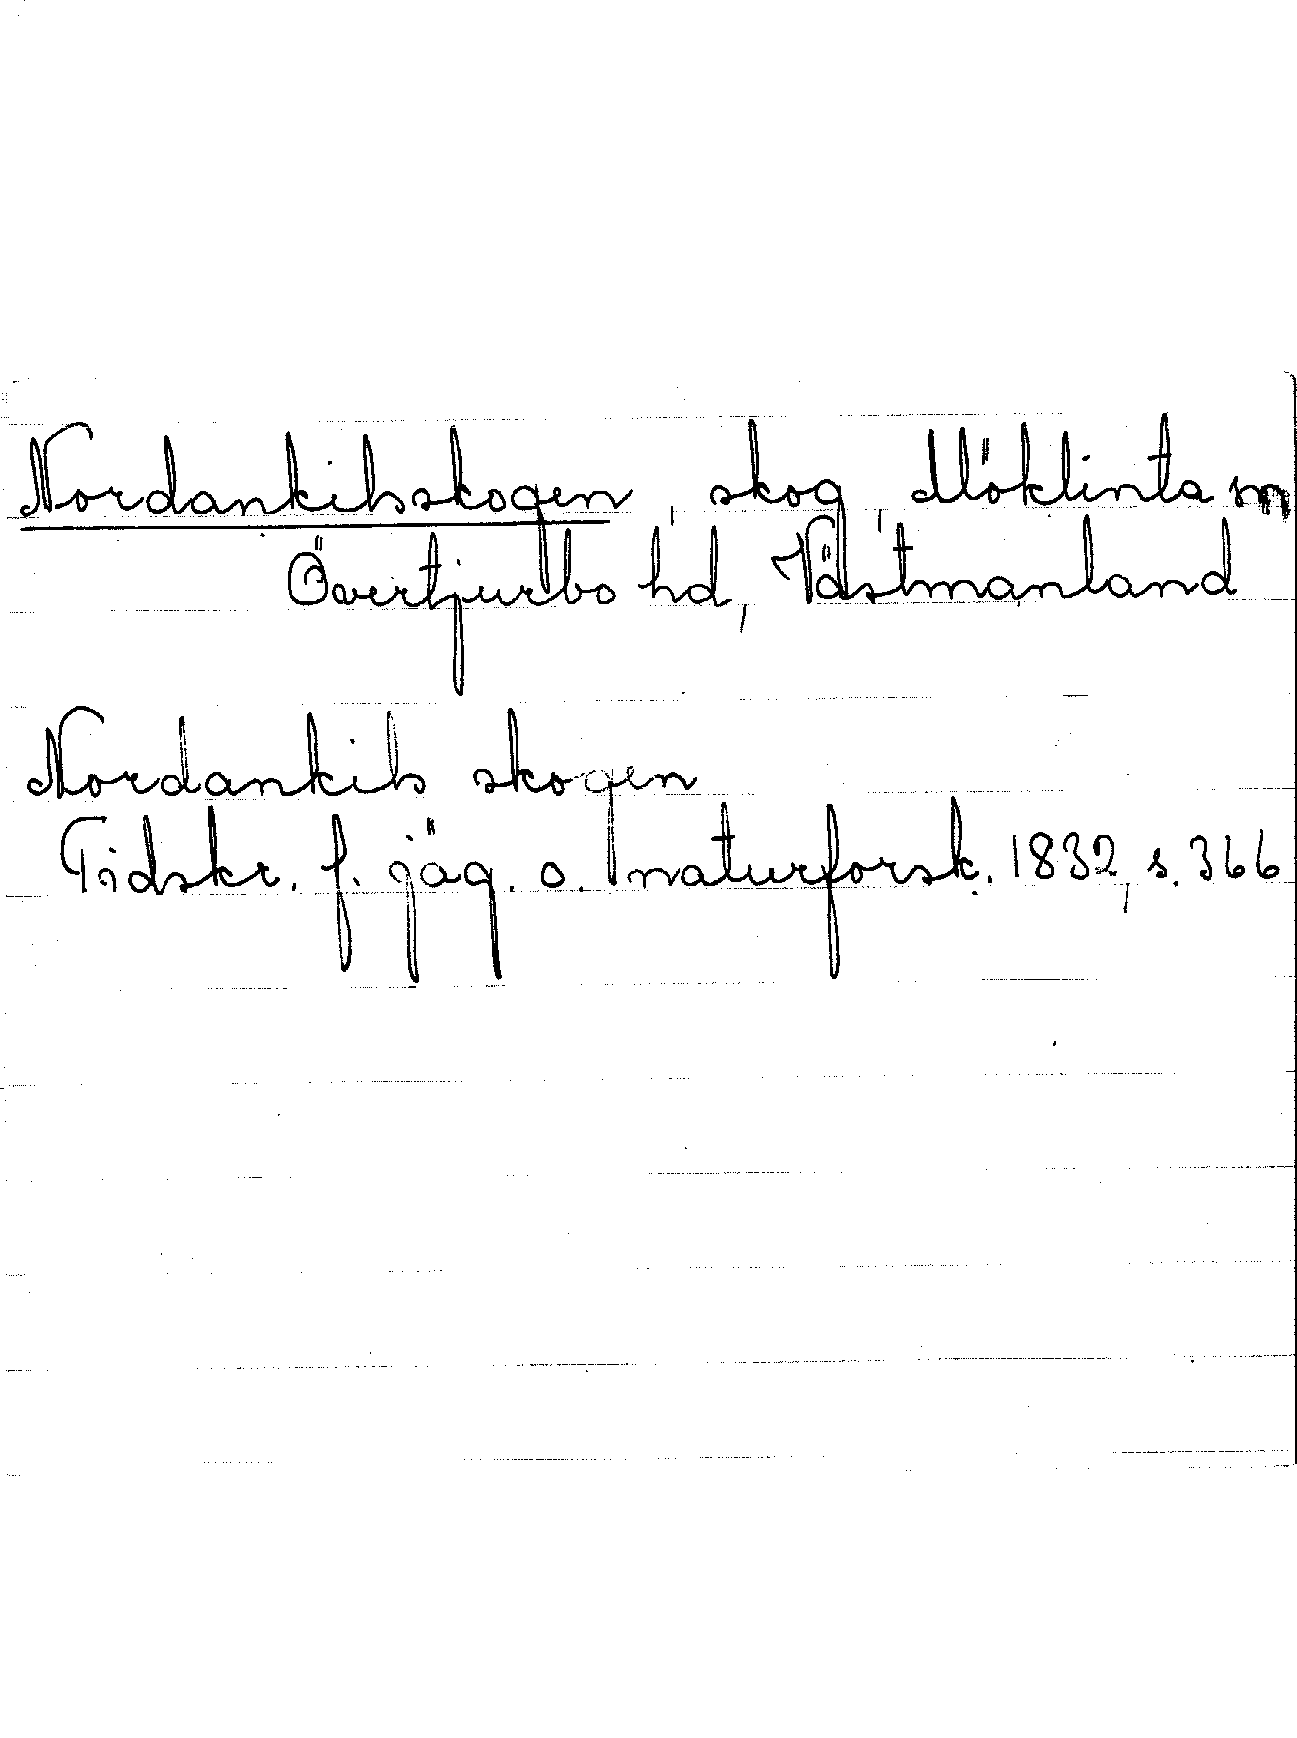 Nordankilsskogen, skog, Möklinta sn
Övertjurbo hd, Västmanland
Nordankils skogen
Tidskr. f. jäg. o. naturforsk. 1832, s. 366